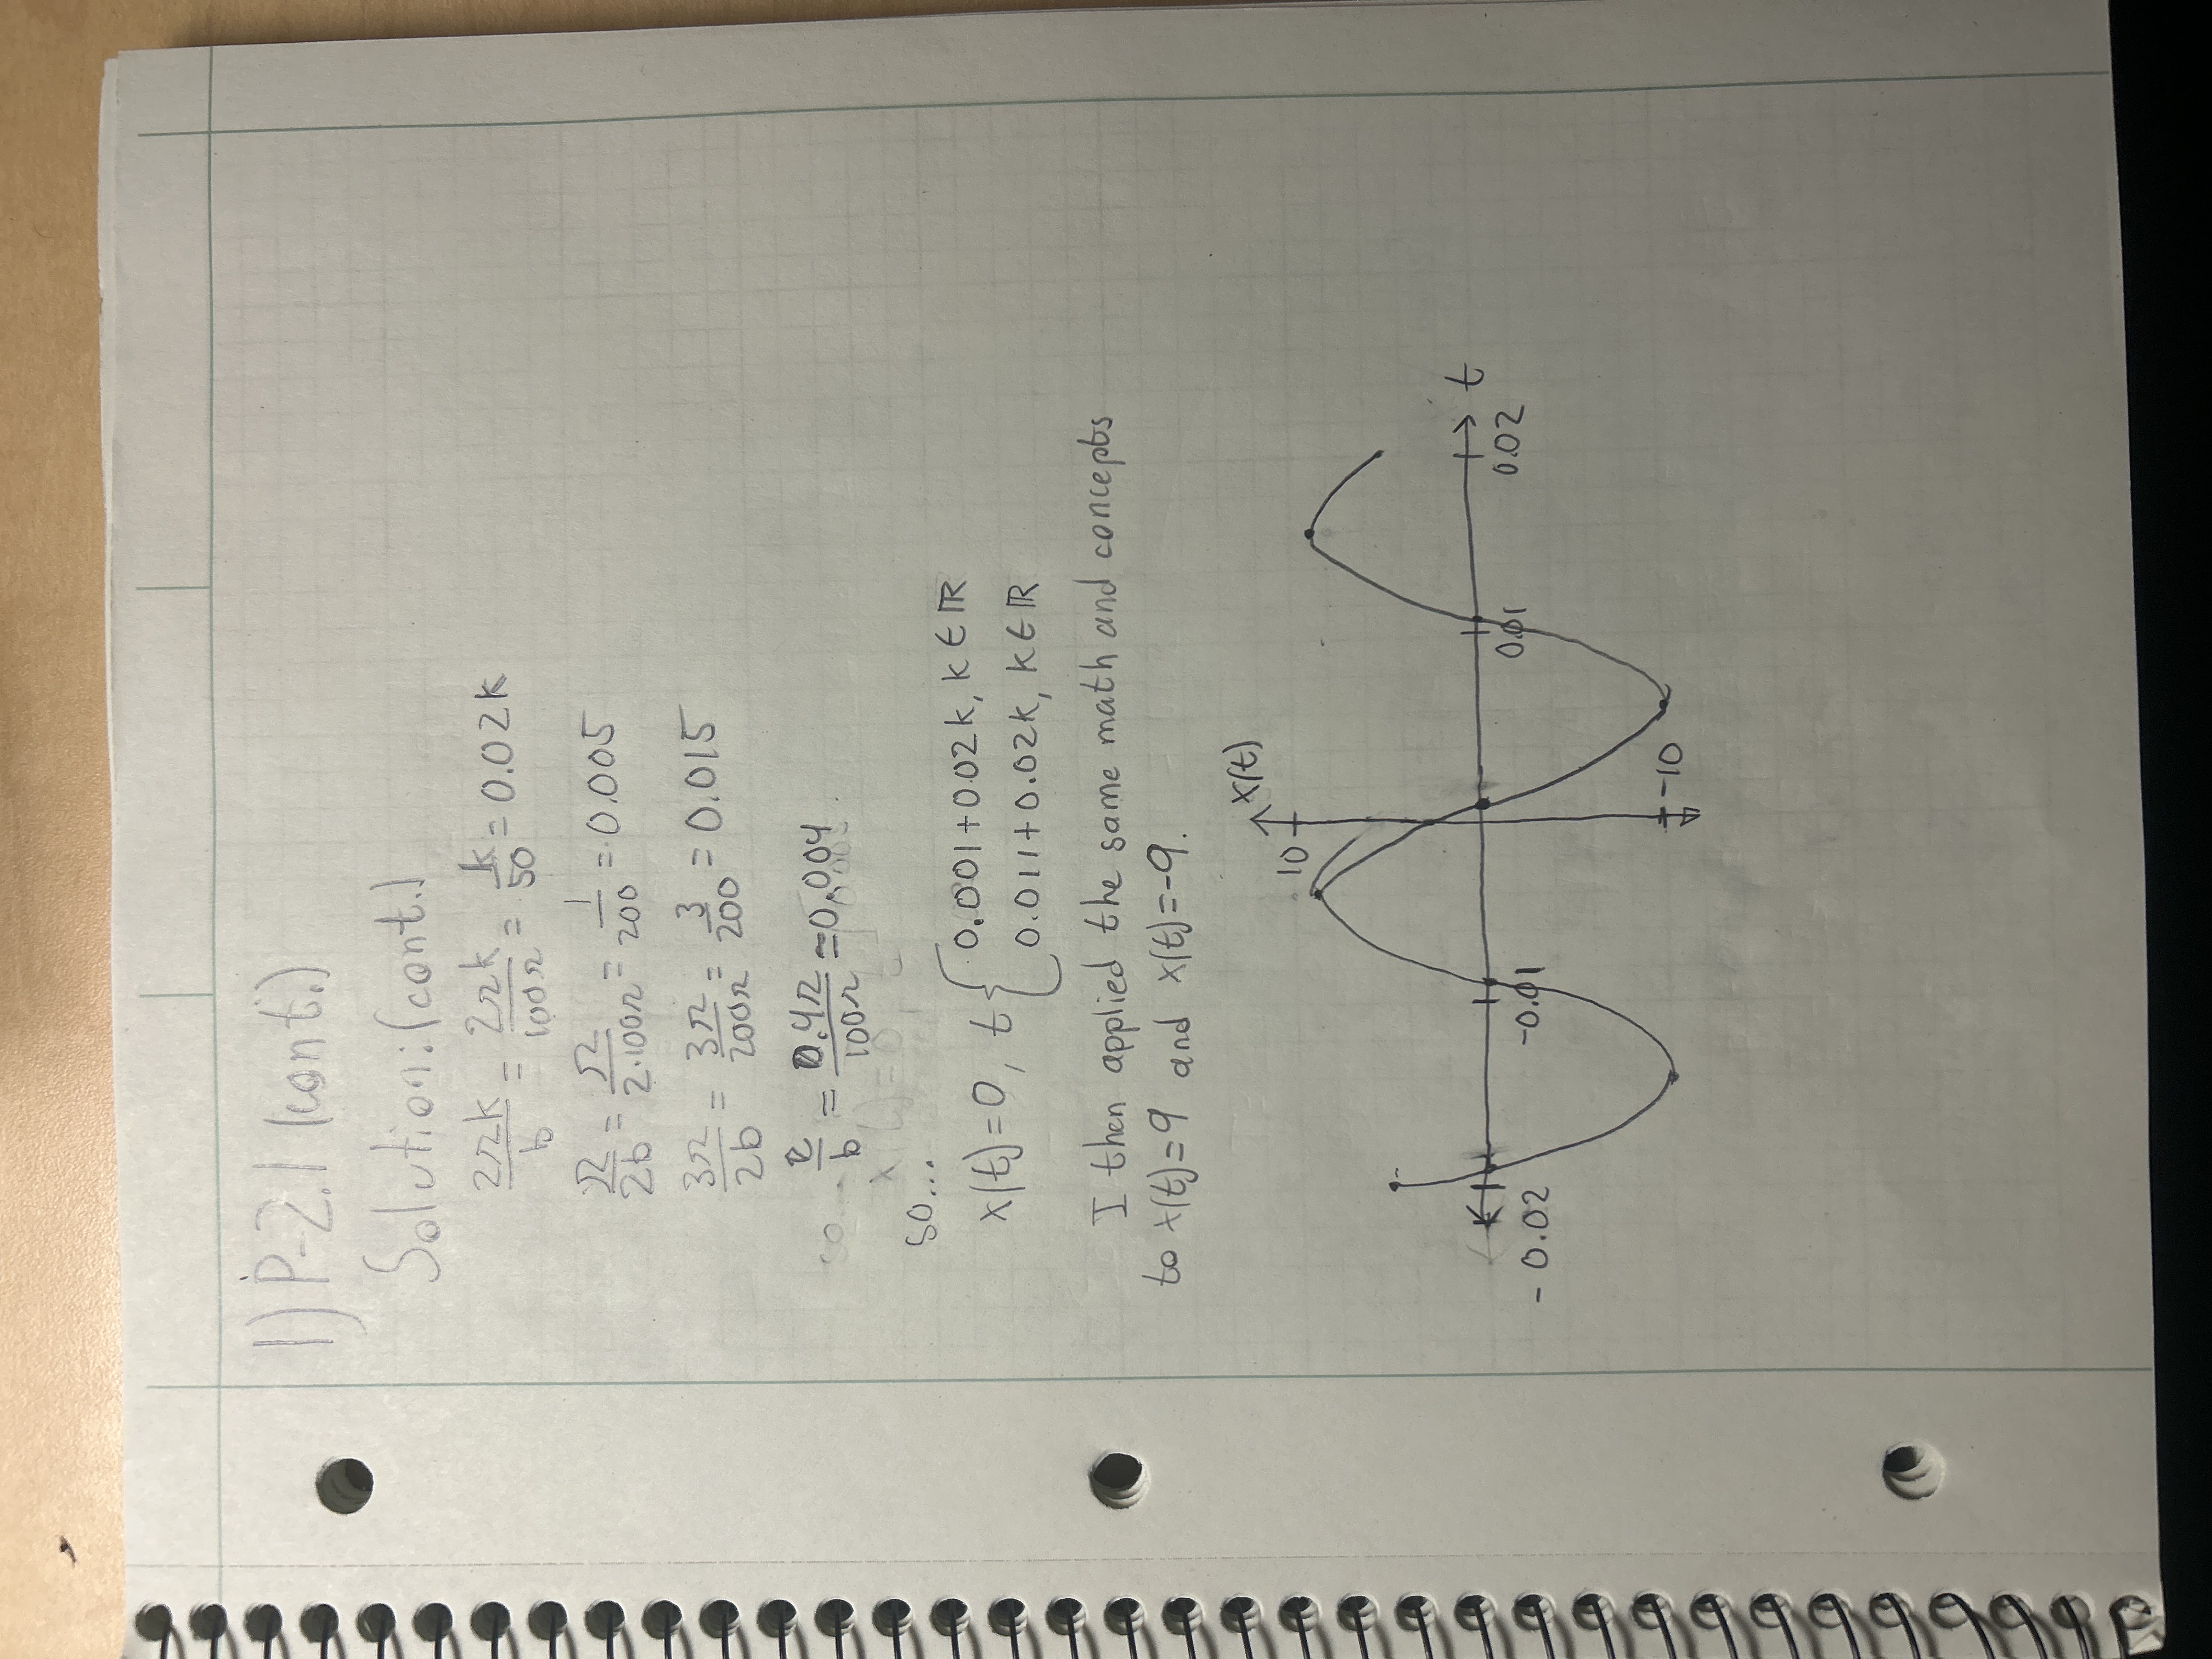 1) P-2.1 (cont.)
Solution: (cont.)
2πk/b = 2πk/100π = k/50 = 0.02k
π/2b = π/2·100π = 1/200 = 0.005
3π/2b = 3π/200π = 3/200 = 0.015
c/b = 0.4π/100π = 0.004
so...
x(t)=0, t { 0.001+0.02k, k∈ℝ
0.011+0.02k, k∈ℝ
I then applied the same math and concepts
to x(t)=9 and x(t)=-9.
x(t)
10
t
-0.02 -0.01 0.01 0.02
-10